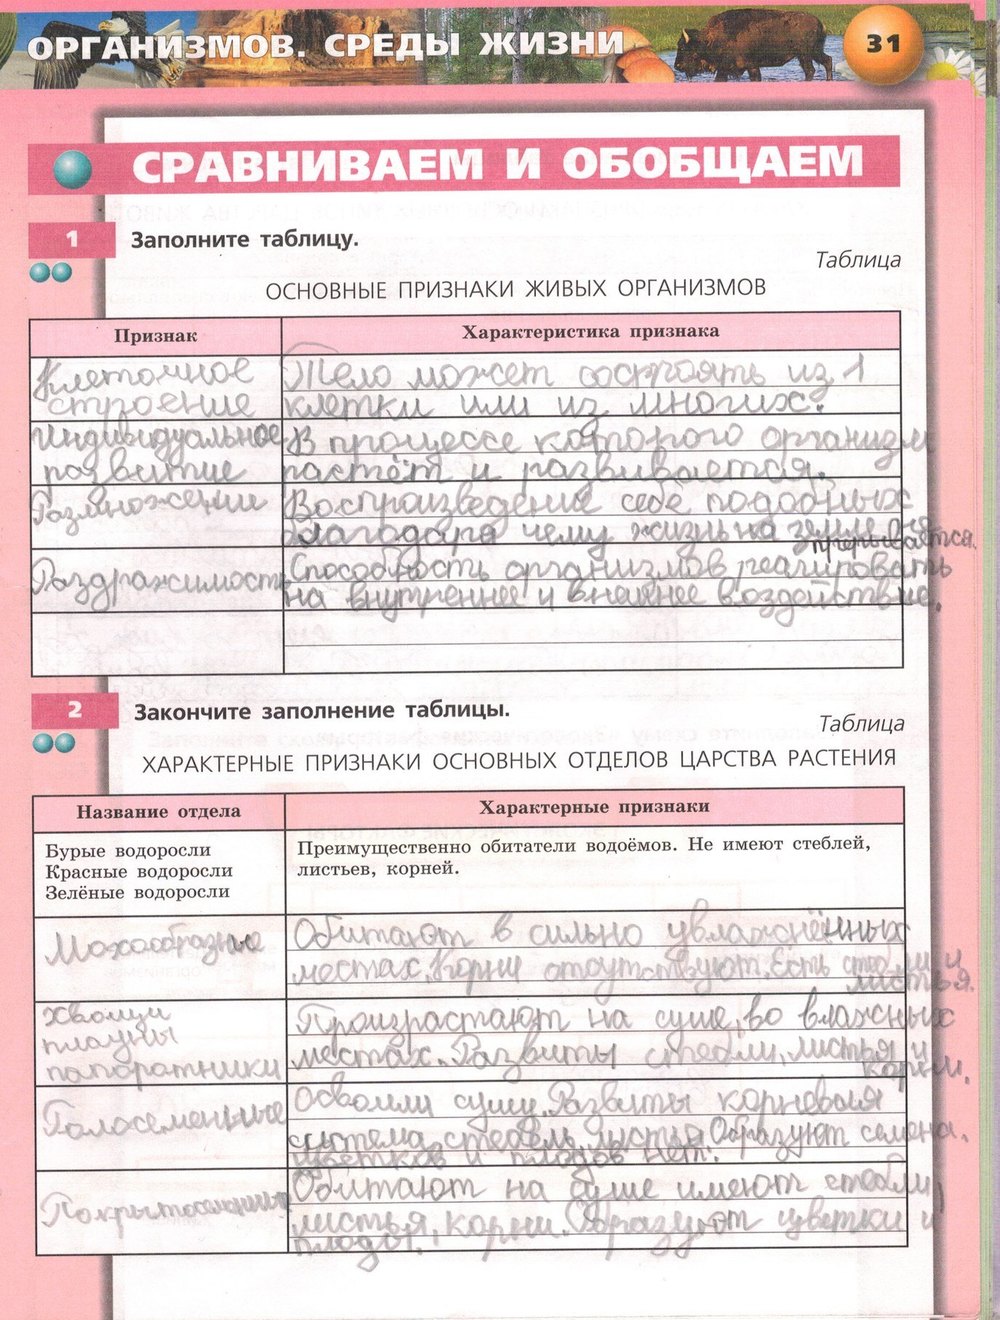 ОРГАНИЗМОВ. СРЕДЫ ЖИЗНИ
31
СРАВНИВАЕМ И ОБОБЩАЕМ
1
Заполните таблицу.
Таблица
ОСНОВНЫЕ ПРИЗНАКИ ЖИВЫХ ОРГАНИЗМОВ
Признак
Характеристика признака
Клеточное
строение
Тело может состоять из 1
клетки или из многих.
Индивидуальное
развитие
В процессе которого организм
растёт и развивается.
Размножении
Воспроизведение себе подобных
благодаря чему жизнь на земле
прерывается.
Раздражимость
Способность организмов реагировать
на внутреннее и внешнее воздействие.
2
Закончите заполнение таблицы.
Таблица
ХАРАКТЕРНЫЕ ПРИЗНАКИ ОСНОВНЫХ ОТДЕЛОВ ЦАРСТВА РАСТЕНИЯ
Название отдела
Характерные признаки
Бурые водоросли
Красные водоросли
Зелёные водоросли
Преимущественно обитатели водоёмов. Не имеют стеблей,
листьев, корней.
Мохообразные
Обитают в сильно увлажнённых
местах. Корни отсутствуют. Есть стебли и
листья.
хвощи
плауны
папоратники
Произрастают на суше, во влажных
местах. Развиты стебли, листья и
корни.
Голосеменные
Освоили сушу. Развиты корневая
система, стебель, листья. Образуют семена.
цветков и плодов нет.
Покрытосеменные
Обитают на суше имеют стебли,
листья, корни. Образуют цветки и
плоды.